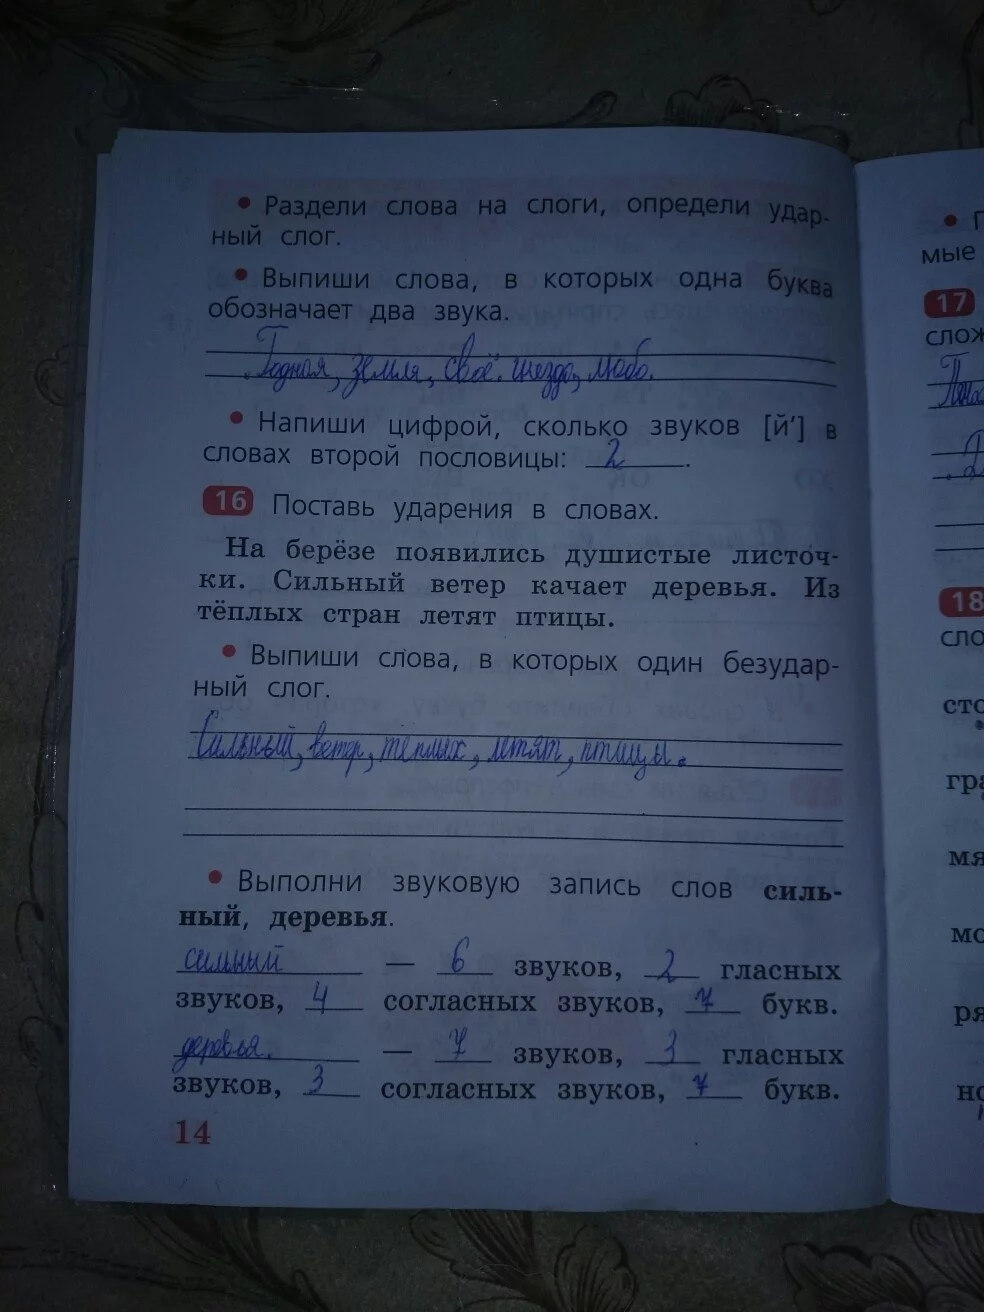 • Раздели слова на слоги, определи удар-
ный слог.
• Выпиши слова, в которых одна буква
обозначает два звука.
Родная, земля, своё. гнездо, любо.
• Напиши цифрой, сколько звуков [й’] в
словах второй пословицы: 2.
16 Поставь ударения в словах.
На берёзе появились душистые листоч-
ки. Сильный ветер качает деревья. Из
тёплых стран летят птицы.
• Выпиши слова, в которых один безудар-
ный слог.
Сильный, ветер, тёплых, летят, птицы.
• Выполни звуковую запись слов силь-
ный, деревья.
сильный — 6 звуков, 2 гласных
звуков, 4 согласных звуков, 7 букв.
деровья. — 7 звуков, 3 гласных
звуков, 3 согласных звуков, 7 букв.
14
•
мые
17
слож
18
сло
сто
гра
мя
мо
ря
но